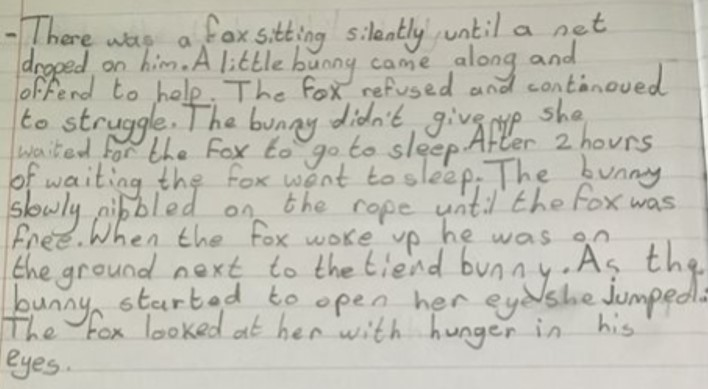 - There was a fox sitting silently until a net
droped on him. A little bunny came along and
offerd to help. The fox refused and contanoued
to struggle. The bunny didn't give up she
waited for the fox to go to sleep. After 2 hours
of waiting the fox went to sleep. The bunny
slowly nibbled on the rope until the fox was
free. When the fox woke up he was on
the ground next to the tiend bunny. As the
bunny started to open her eyes she jumped.
The fox looked at her with hunger in his
eyes.